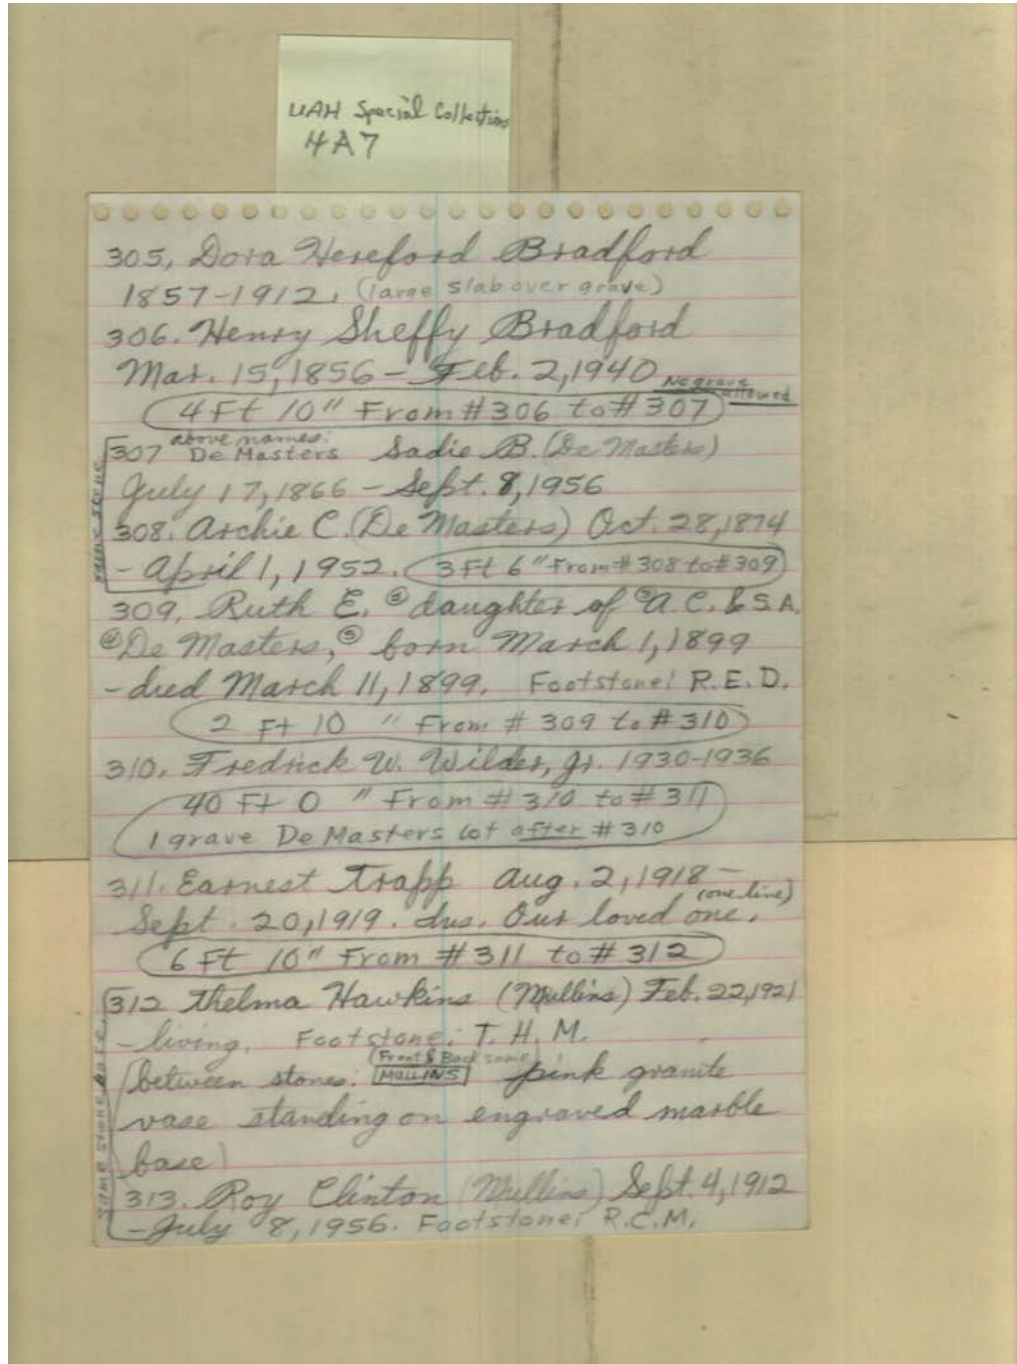 UAH Special Collections
4A7
305. Dora Hereford Bradford
1857-1912. (large slab over grave)
306. Henry Sheffy Bradford
Mar. 15, 1856 - Feb. 2, 1940 No grave allowed
4 Ft 10" From # 306 to # 307
above names:
307 De Masters Sadie B. (De Masters)
July 17, 1866 - Sept. 8, 1956
same stone
308. Archie C. (De Masters) Oct. 28, 1874
- April 1, 1952. 3 Ft 6" From # 308 to # 309
309. Ruth E. daughter of A.C. & S.A.
De Masters, born March 1, 1899
- died March 11, 1899. Footstone: R.E.D.
2 Ft 10 " From # 309 to # 310
310. Fredrick W. Wilder, Jr. 1930-1936
40 Ft 0 " From # 310 to # 311
1 grave De Masters lot after # 310
311. Earnest Trapp Aug. 2, 1918 -
(one line)
Sept. 20, 1919. Ins. Our loved one.
6 Ft 10" From # 311 to # 312
312 Thelma Hawkins (Mullins) Feb. 22, 1921
- living. Footstone: T. H. M.
(Front & Back same)
(between stones: MULLINS pink granite
vase standing on engraved marble
base)
same stone base
313. Roy Clinton (Mullins) Sept. 4, 1912
- July 8, 1956. Footstone: R.C.M.